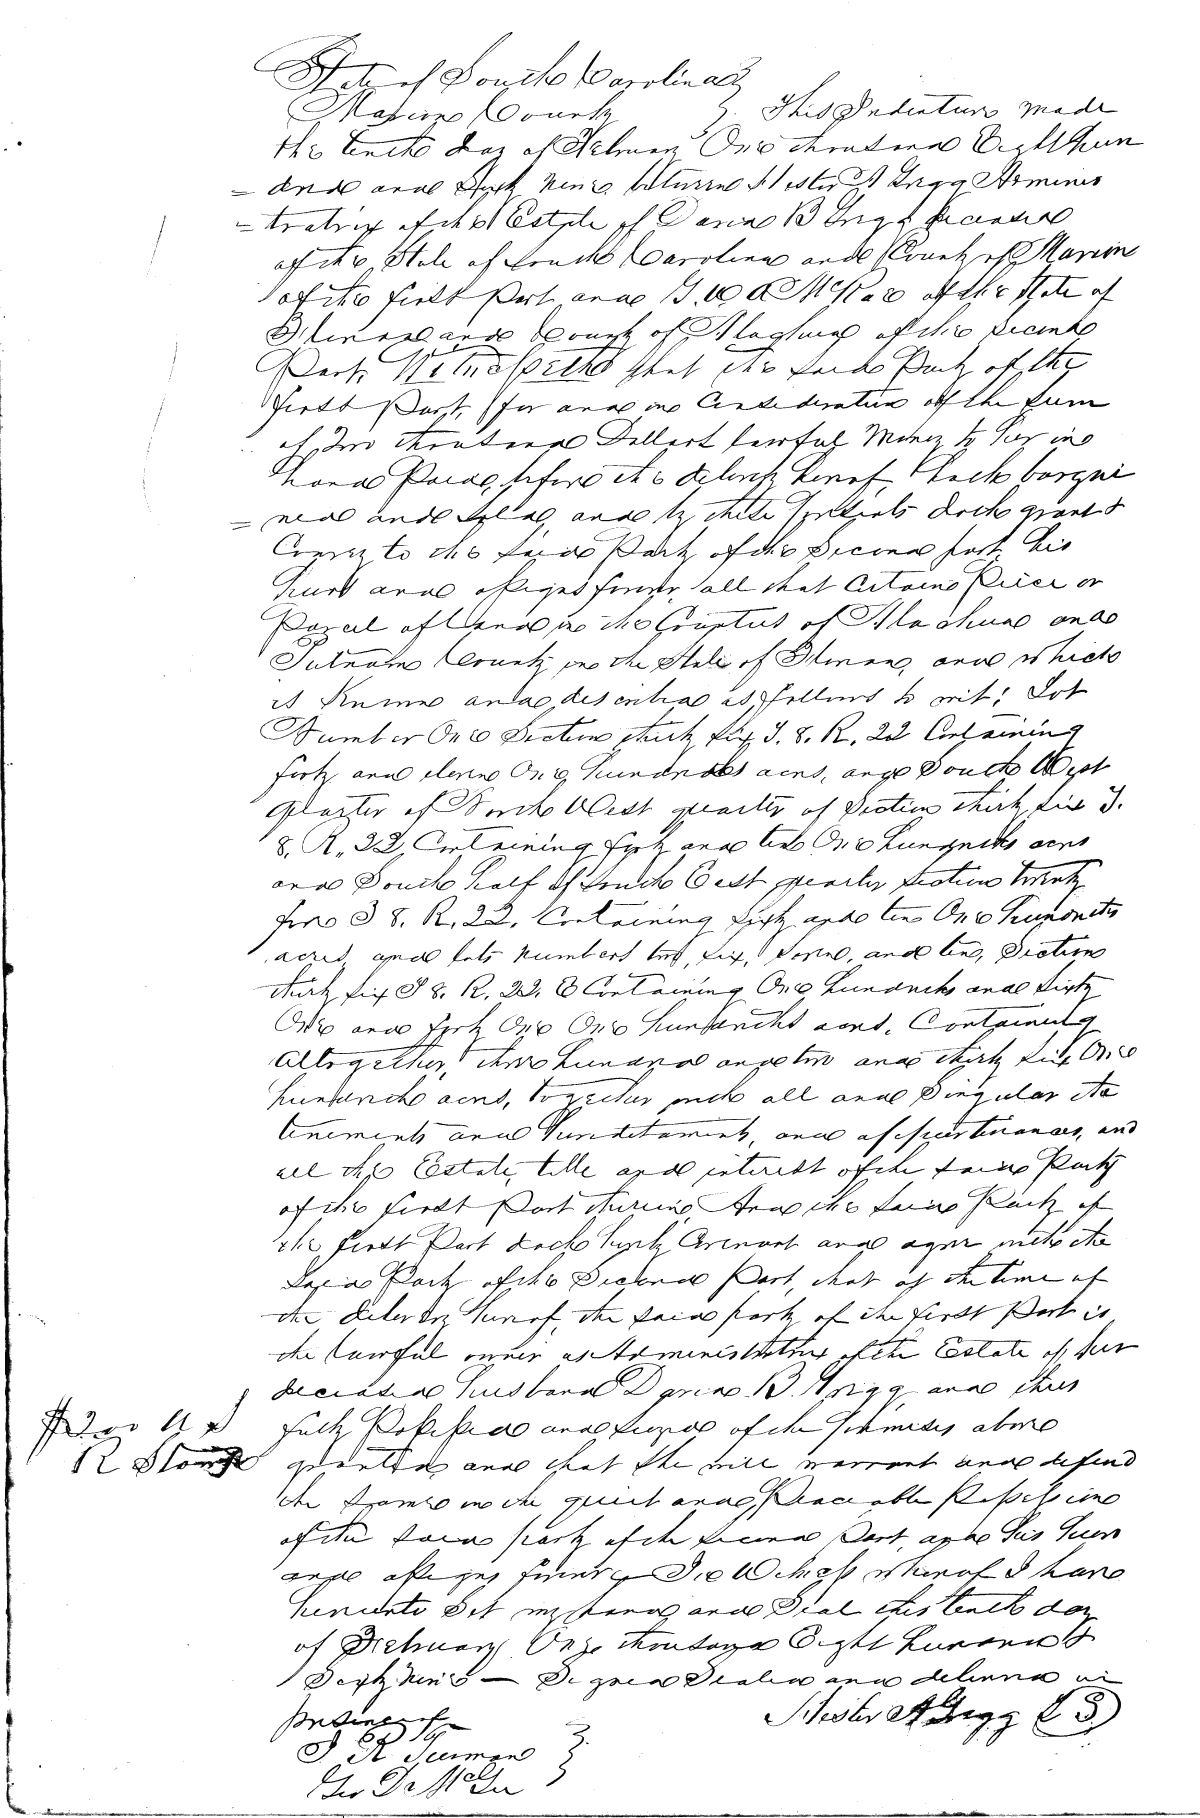 State of South Carolina
Marion County This Indenture made
the tenth day of February One thousand Eight hun
= dred and Sixty Nine between Hester A Grigg Adminis
= tratrix of the Estate of David B Grigg deceased
of the State of South Carolina and County of Marion
of the first Part and McRae of the State of
Florida and County of Alachua of the second
Part, Witnesseth that the said Party of the
first Part, for and in Consideration of the Sum
of Two thousand Dollars lawful Money to her in
hand Paid, before the delivery hereof, hath bargai
= ned and sold, and by these Presents doth grant &
Convey to the said Party of the Second part, his
heirs and assigns forever, all that Certain Piece or
Parcel of Land in the Counties of Alachua and
Putnam County in the State of Florida, and which
is Known and described as follows to wit: Lot
Number One Section thirty six T. 8. R. 22 Containing
forty and eleven One hundredths acres, and South West
quarter of North West quarter of Section thirty six T.
8. R. 22, Containing forty and ten One hundredths acres
and South half of South East quarter section twenty
five T 8. R. 22. Containing sixty and ten One hundredths
acres, and lots numbers two, six, seven, and ten, Section
thirty six T 8. R. 22. E Containing One hundred and sixty
One and forty One One hundredths acres. Containing
Altogether, three hundred and two and thirty six One
hundredth acres, together with all and Singular the
tenements and hereditaments, and appurtenances, and
all the Estate, title and interest of the said Party
of the first Part therein, And the said Party of
the first Part doth hereby Covenant and agree with the
Said Party of the Second Part, that at the time of
the delivery hereof, the said party of the first Part is
the lawful owner as Administratrix of the Estate of her
deceased husband David B. Grigg and thus
fully Possessed and seized of the Premises above
R Stamp granted and that she will warrant and defend
the same in the quiet and Peaceable Possession
of the said party of the second Part, and his heirs
and assigns forever In Witness whereof I have
hereunto Set my hand and Seal this tenth day
of February One thousand Eight hundred &
Sixty Nine — Signed Sealed and delivered in
presence of Hester A Grigg (LS)